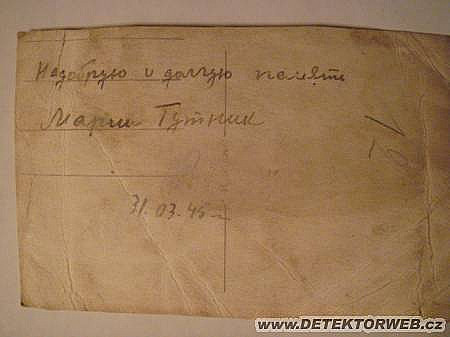 На добрую и долгую память
Марии Гутник
31.03.45
WWW.DETEKTORWEB.CZ